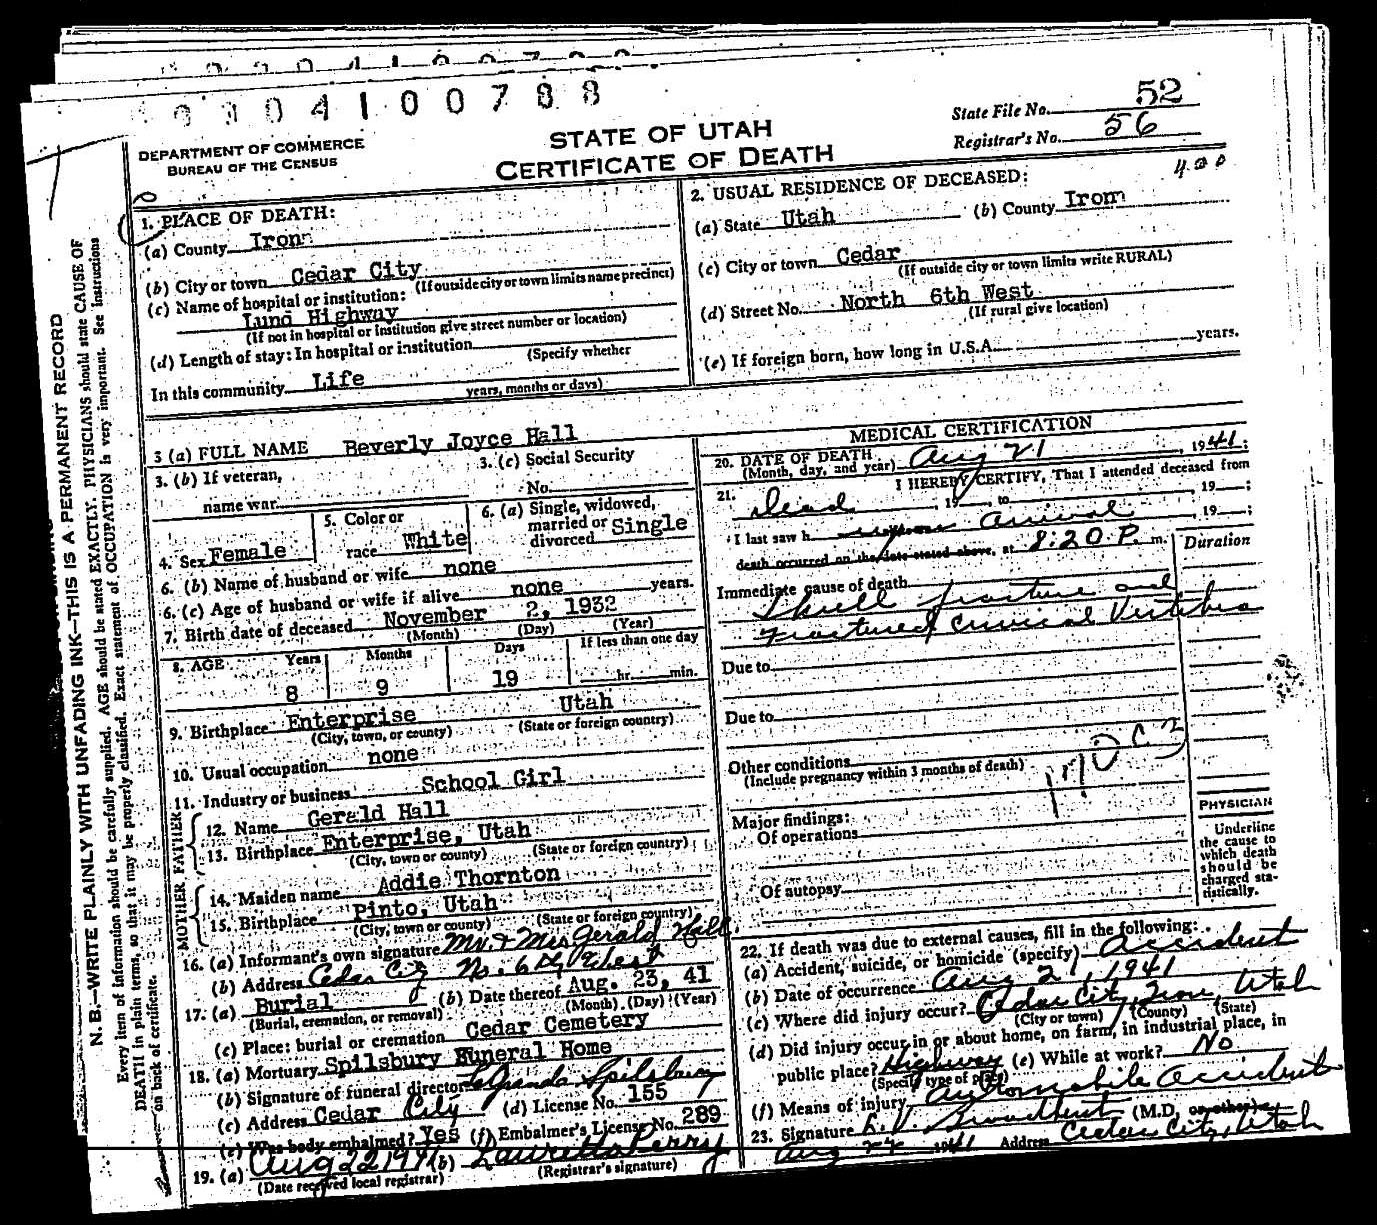 0 0 0 4 1 0 0 7 8 8
State File No. 52
Registrar's No. 56
DEPARTMENT OF COMMERCE
BUREAU OF THE CENSUS
STATE OF UTAH
CERTIFICATE OF DEATH
N. B.—WRITE PLAINLY WITH UNFADING INK—THIS IS A PERMANENT RECORD
Every item of information should be carefully supplied. AGE should be stated EXACTLY. PHYSICIANS should state CAUSE OF
DEATH in plain terms, so that it may be properly classified. Exact statement of OCCUPATION is very important. See instructions
on back of certificate.
1. PLACE OF DEATH:
(a) County Iron
(b) City or town Cedar City
(If outside city or town limits name precinct)
(c) Name of hospital or institution:
Lund Highway
(If not in hospital or institution give street number or location)
(d) Length of stay: In hospital or institution
(Specify whether
In this community Life
years, months or days)
2. USUAL RESIDENCE OF DECEASED:
(a) State Utah (b) County Iron
(c) City or town Cedar
(If outside city or town limits write RURAL)
(d) Street No. North 6th West
(If rural give location)
(e) If foreign born, how long in U.S.A. years.
3 (a) FULL NAME Beverly Joyce Hall
3. (b) If veteran,
name war
3. (c) Social Security
No.
4. Sex Female
5. Color or
race White
6. (a) Single, widowed,
married or
divorced Single
6. (b) Name of husband or wife none
6. (c) Age of husband or wife if alive none years.
7. Birth date of deceased November 2, 1932
(Month) (Day) (Year)
8. AGE Years Months Days If less than one day
8 9 19 hr. min.
9. Birthplace Enterprise Utah
(City, town, or county) (State or foreign country)
10. Usual occupation none
11. Industry or business School Girl
FATHER
12. Name Gerald Hall
13. Birthplace Enterprise, Utah
(City, town or county) (State or foreign country)
MOTHER
14. Maiden name Addie Thornton
15. Birthplace Pinto, Utah
(City, town or county) (State or foreign country)
16. (a) Informant's own signature Mr. & Mrs Gerald Hall
(b) Address Cedar City No. 6th West
17. (a) Burial (b) Date thereof Aug. 23, 41
(Burial, cremation, or removal) (Month) (Day) (Year)
(c) Place: burial or cremation Cedar Cemetery
18. (a) Mortuary Spilsbury Funeral Home
(b) Signature of funeral director LeGrande Spilsbury
(c) Address Cedar City (d) License No. 155
(e) Was body embalmed? Yes (f) Embalmer's License No. 289
19. (a) Aug 22 1941 (b) Lauretta Perry
(Date received local registrar) (Registrar's signature)
MEDICAL CERTIFICATION
20. DATE OF DEATH
(Month, day, and year) Aug 21, 1941;
21. I HEREBY CERTIFY, That I attended deceased from
Dead, 19 to , 19 ;
I last saw h arrival, 19 ;
death occurred on the date stated above, at 8:20 P. m.
Duration
Immediate cause of death
Skull fracture and
Fractured Cervical Vertebra
Due to
Due to
Other conditions
(Include pregnancy within 3 months of death)
Major findings:
Of operations
Of autopsy
PHYSICIAN
Underline
the cause to
which death
should be
charged sta-
tistically.
22. If death was due to external causes, fill in the following:
(a) Accident, suicide, or homicide (specify) Accident
(b) Date of occurrence Aug 21, 1941
(c) Where did injury occur? Cedar City, Iron Utah
(City or town) (County) (State)
(d) Did injury occur in or about home, on farm, in industrial place, in
public place? Highway (e) While at work? No
(Specify type of place)
(f) Means of injury Automobile accident
23. Signature (M.D. or other)
Aug 22 1941 Address Cedar City, Utah